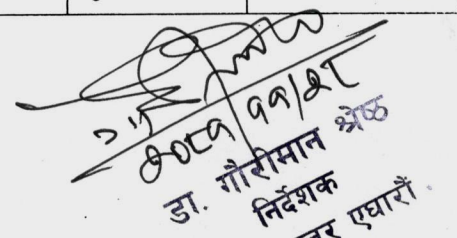 २०८१/११/२८
डा. गौरीमान श्रेष्ठ
निर्देशक
एघारौं